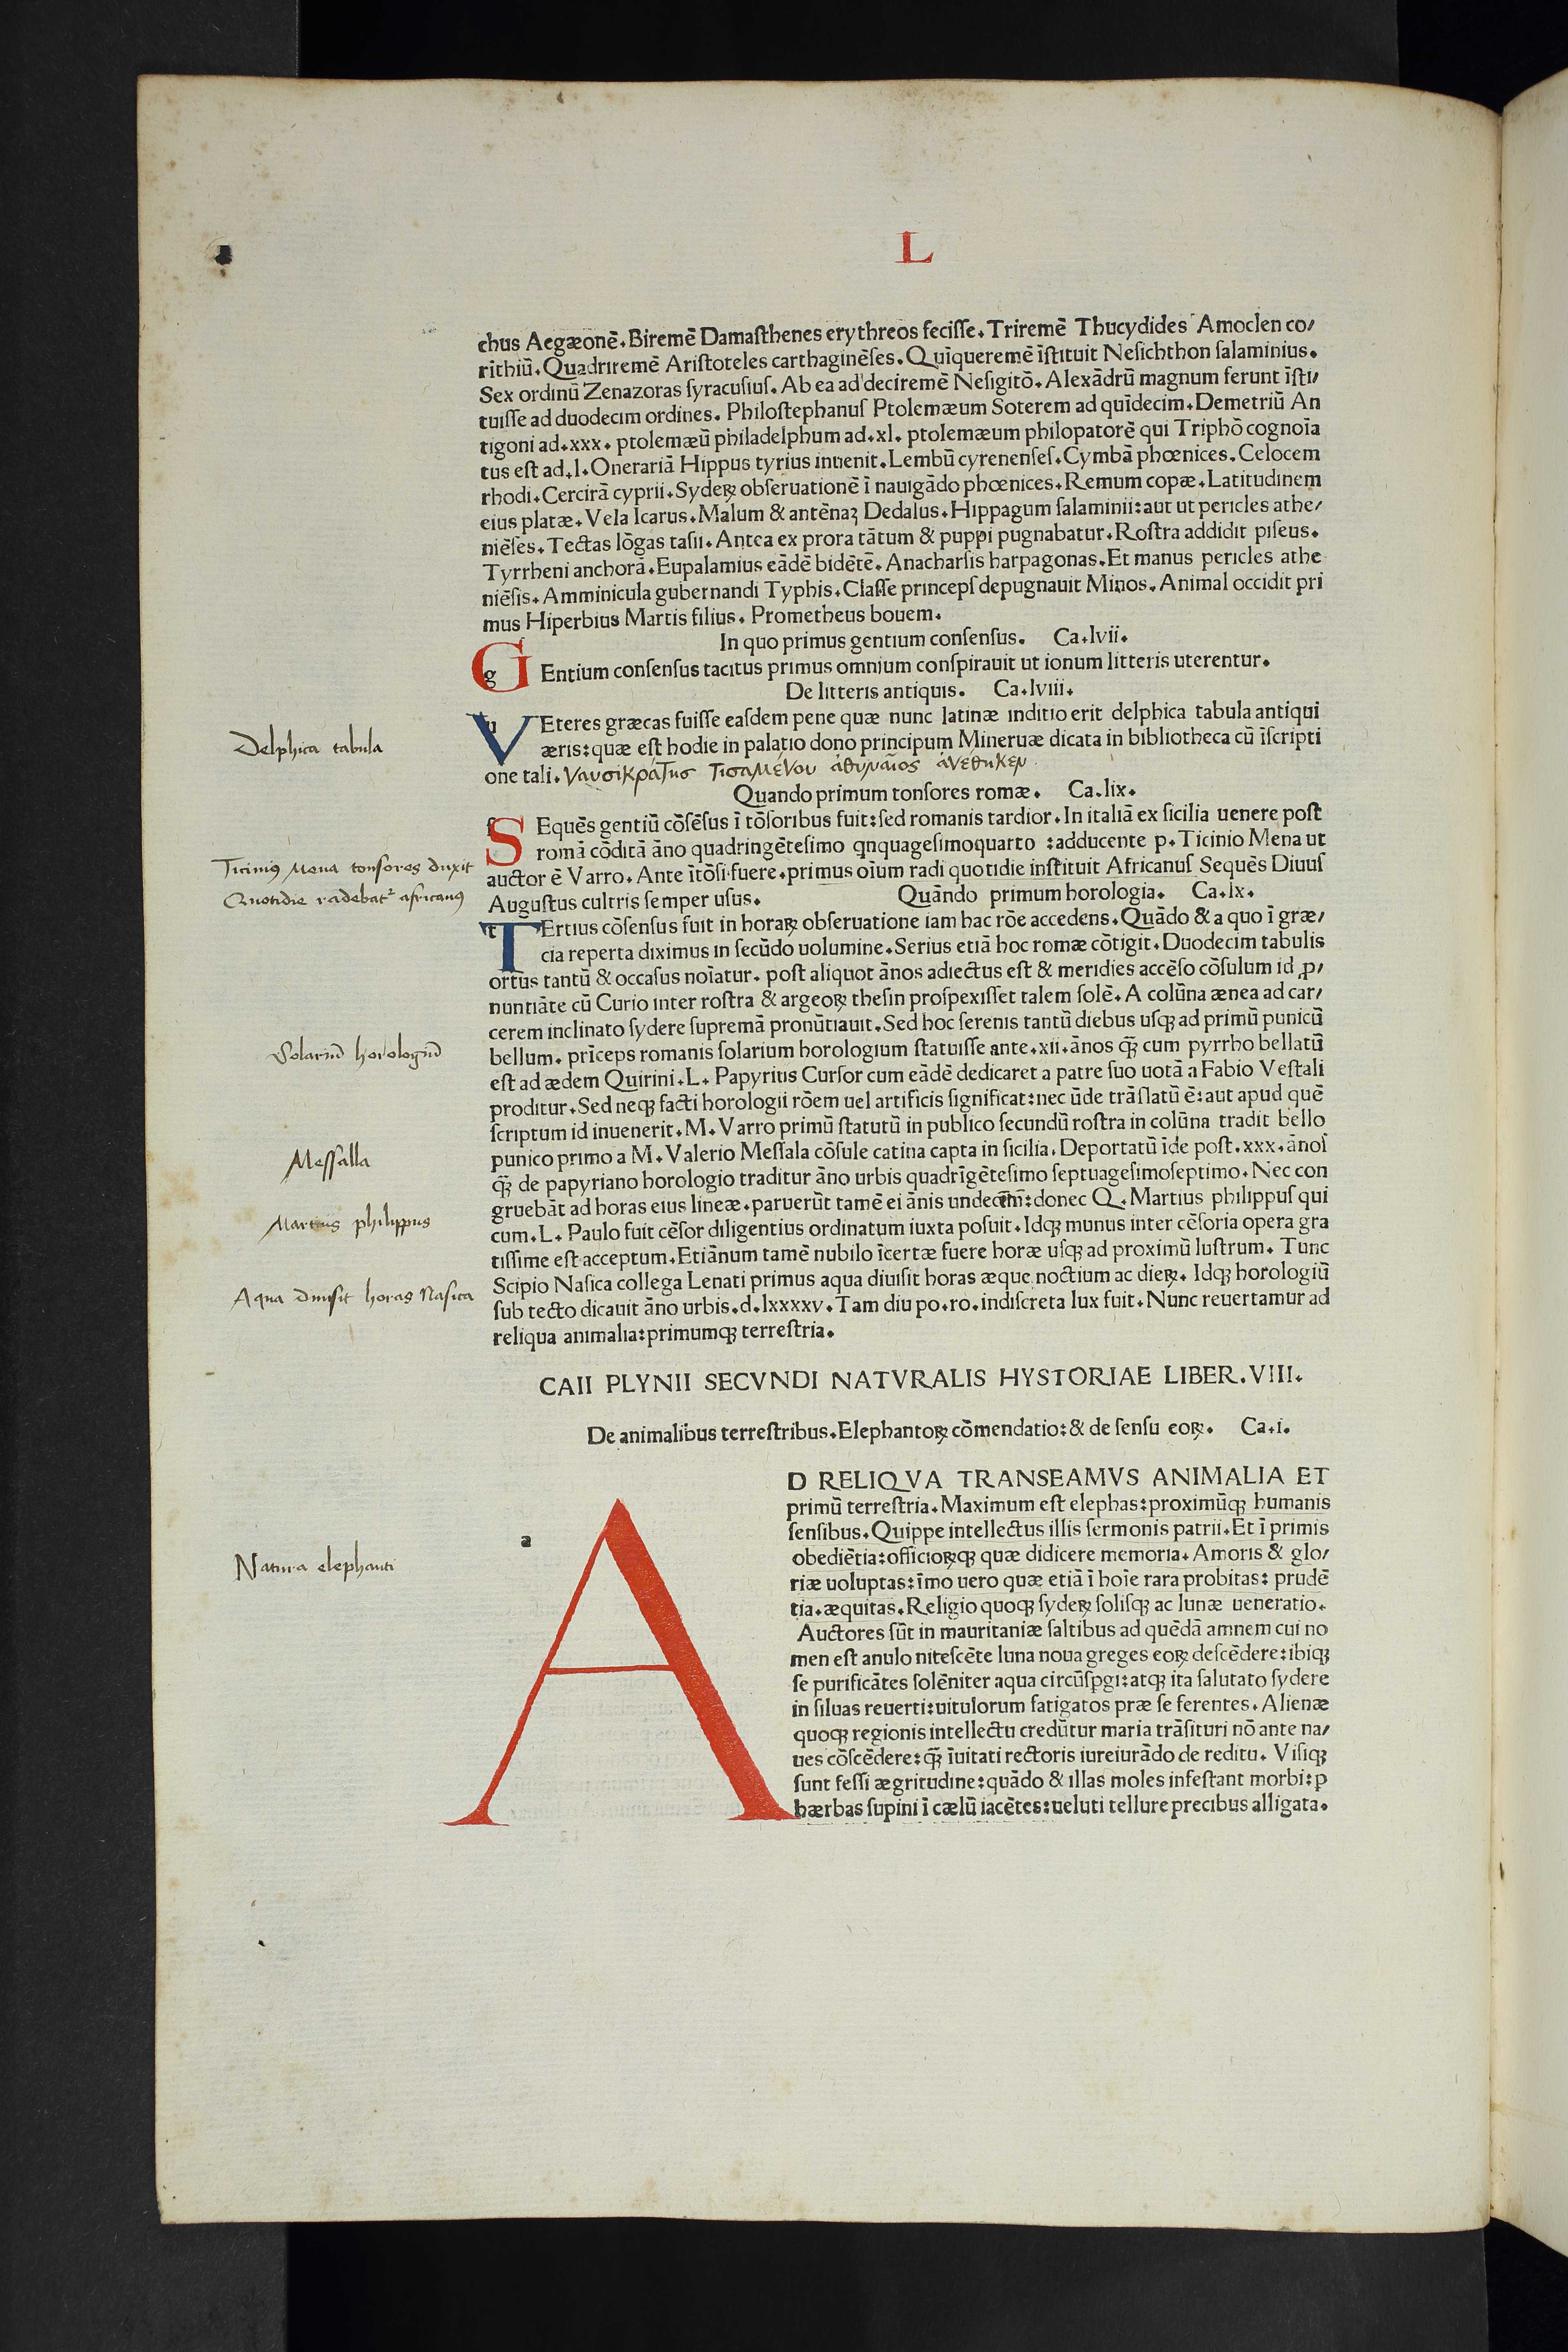 L
chus Aegæonē. Biremē Damaſthenes erythreos feciſſe. Triremē Thucydides Amoclen co/
rithiū. Quadriremē Ariſtoteles carthaginēſes. Quīqueremē īſtituit Neſichthon ſalaminius.
Sex ordinū Zenazoras ſyracuſiuſ. Ab ea ad deciremē Neſigitō. Alexādrū magnum ferunt īſti/
tuiſſe ad duodecim ordines. Philoſtephanuſ Ptolemæum Soterem ad quīdecim. Demetriū An
tigoni ad. xxx. ptolemæū philadelphum ad. xl. ptolemæum philopatorē qui Triphō cognoīa
tus eſt ad. l. Onerariā Hippus tyrius inuenit. Lembū cyrenenſeſ. Cymbā phœnices. Celocem
rhodi. Cercirā cyprii. Syderꝝ obſeruationē ī nauigādo phœnices. Remum copæ. Latitudinem
eius platæ. Vela Icarus. Malum & antēnaꝫ Dedalus. Hippagum ſalaminii: aut ut pericles athe/
niēſes. Tectas lōgas taſii. Antea ex prora tātum & puppi pugnabatur. Roſtra addidit piſeus.
Tyrrheni anchorā. Eupalamius eādē bidētē. Anacharſis harpagonas. Et manus pericles athe
niēſis. Amminicula gubernandi Typhis. Claſſe princepſ depugnauit Minos. Animal occidit pri
mus Hiperbius Martis filius. Prometheus bouem.
In quo primus gentium conſenſus. Ca. lvii.
G g Entium conſenſus tacitus primus omnium conſpirauit ut ionum litteris uterentur.
De litteris antiquis. Ca. lviii.
V u Eteres græcas fuiſſe eaſdem pene quæ nunc latinæ inditio erit delphica tabula antiqui
Delphica tabula
æris: quæ eſt hodie in palatio dono principum Mineruæ dicata in bibliotheca cū īſcripti
one tali. Ναυσικράτης τισαμένου ἀθηναῖος ἀνέθηκεν
Quando primum tonſores romæ. Ca. lix.
S ſ Equēs gentiū cōſēſus ī tōſoribus fuit: ſed romanis tardior. In italiā ex ſicilia uenere poſt
romā cōditā āno quadringēteſimo qnquageſimoquarto : adducente p. Ticinio Mena ut
Ticiniꝰ Mena tonſores duxit
auctor ē Varro. Ante ītōſi fuere. primus oīum radi quotidie inſtituit Africanuſ Sequēs Diuuſ
Quotidie radebatᵣ africanꝰ
Auguſtus cultris ſemper uſus. Quāndo primum horologia. Ca. lx.
T t Ertius cōſenſus fuit in horaꝝ obſeruatione iam hac rōe accedens. Quādo & a quo ī græ/
cia reperta diximus in ſecūdo uolumine. Serius etiā hoc romæ cōtigit. Duodecim tabulis
ortus tantū & occaſus noīatur. poſt aliquot ānos adiectus eſt & meridies accēſo cōſulum id ꝓ/
nuntiāte cū Curio inter roſtra & argeoꝝ theſin proſpexiſſet talem ſolē. A colūna ænea ad car/
cerem inclinato ſydere ſupremā pronūtiauit. Sed hoc ſerenis tantū diebus uſqꝫ ad primū punicū
Solariū horologiū
bellum. prīceps romanis ſolarium horologium ſtatuiſſe ante. xii. ānos qꝫ̄ cum pyrrho bellatū
eſt ad ædem Quirini. L. Papyrius Curſor cum eādē dedicaret a patre ſuo uotā a Fabio Veſtali
proditur. Sed neqꝫ facti horologii rōem uel artificis ſignificat: nec ūde trāſlatū ē: aut apud quē
ſcriptum id inuenerit. M. Varro primū ſtatutū in publico ſecundū roſtra in colūna tradit bello
Meſſalla
punico primo a M. Valerio Meſſala cōſule catina capta in ſicilia. Deportatū īde poſt. xxx. ānoſ
qꝫ̄ de papyriano horologio traditur āno urbis quadrīgēteſimo ſeptuageſimoſeptimo. Nec con
gruebāt ad horas eius lineæ. paruerūt tamē ei ānis undecīm: donec Q. Martius philippuſ qui
Martius philippus
cum. L. Paulo fuit cēſor diligentius ordinatum iuxta poſuit. Idqꝫ munus inter cēſoria opera gra
tiſſime eſt acceptum. Etiānum tamē nubilo īcertæ fuere horæ uſqꝫ ad proximū luſtrum. Tunc
Scipio Naſica collega Lenati primus aqua diuiſit horas æque noctium ac dieꝝ. Idqꝫ horologiū
Aqua diuiſit horas Naſica
ſub tecto dicauit āno urbis. d. lxxxxv. Tam diu po. ro. indiſcreta lux fuit. Nunc reuertamur ad
reliqua animalia: primumqꝫ terreſtria.
CAII PLYNII SECVNDI NATVRALIS HYSTORIAE LIBER. VIII.
De animalibus terreſtribus. Elephantoꝝ cōmendatio: & de ſenſu eoꝝ. Ca. i.
A a D RELIQVA TRANSEAMVS ANIMALIA ET
primū terreſtria. Maximum eſt elephas: proximūqꝫ humanis
ſenſibus. Quippe intellectus illis ſermonis patrii. Et ī primis
obediētia: officioꝝqꝫ quæ didicere memoria. Amoris & glo/
Natura elephanti
riæ uoluptas: īmo uero quæ etiā ī hoīe rara probitas: prudē
tia. æquitas. Religio quoqꝫ ſyderꝝ ſoliſqꝫ ac lunæ ueneratio.
Auctores ſūt in mauritaniæ ſaltibus ad quēdā amnem cui no
men eſt anulo niteſcēte luna noua greges eoꝝ deſcēdere: ibiqꝫ
ſe purificātes ſolēniter aqua circūſpgi: atqꝫ ita ſalutato ſydere
in ſiluas reuerti: uitulorum fatigatos præ ſe ferentes. Alienæ
quoqꝫ regionis intellectu credūtur maria trāſituri nō ante na/
ues cōſcēdere: qꝫ̄ īuitati rectoris iureiurādo de reditu. Viſiqꝫ
ſunt feſſi ægritudine: quādo & illas moles infeſtant morbi: p
hærbas ſupini ī cælū iacētes: ueluti tellure precibus alligata.